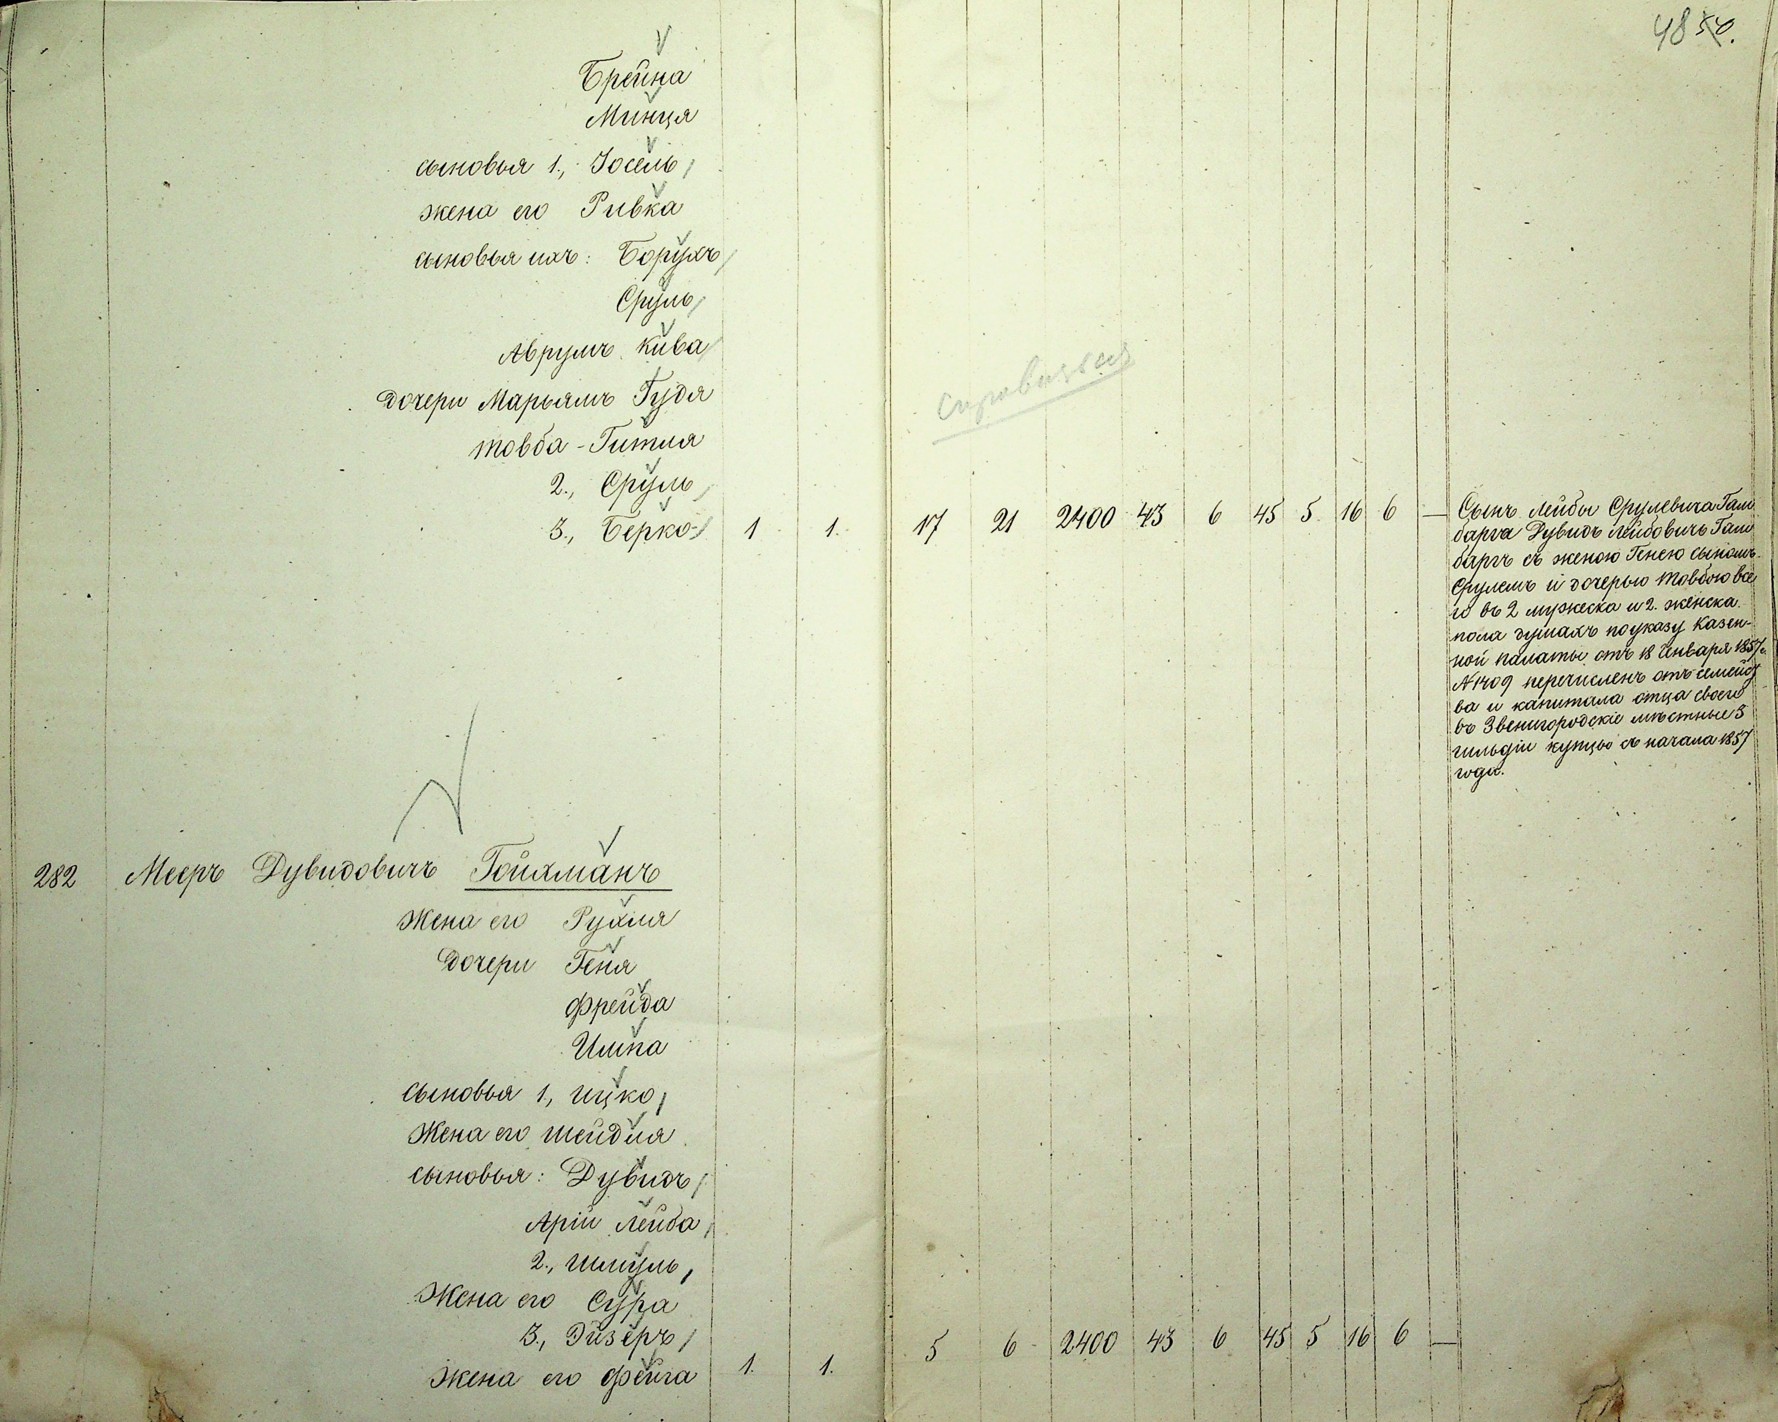 48 50.
Брейна
Минця
сыновья 1., Іосель
жена его Ривка
сыновья ихъ: Борухъ
Сруль
Аврумъ Кива
дочери Марьямъ Гудя
Товба - Гитля
2., Сруль
3., Берко 1 1. 17 21 2400 43 6 45 5 16 6 —
Сынъ Лейбы Срулевича Гам
барга Дувидъ Лейбовичъ Гам
баргъ съ женою Генею сыномъ
Срулемъ и дочерью Товбою все
го въ 2 мужеска и 2. женска
пола душахъ по указу Казен-
ной палаты отъ 18 Января 1857 г.
№ 1409 перечисленъ отъ семейс
ва и капитала отца своего
въ Звенигородскіе мѣстные 3
гильдіи купцы съ начала 1857
года.
282 Мееръ Дувидовичъ Гойхманъ
Жена его Рухля
Дочери Геня
Фрейда
Сыновья 1, Ицко
Жена его Шейдля
сыновья: Дувидъ
Арій Лейба
2., Шмуль
Жена его Сура
3., Эйзеръ
жена его Фейга 1. 1. 5 6 2400 43 6 45 5 16 6 —